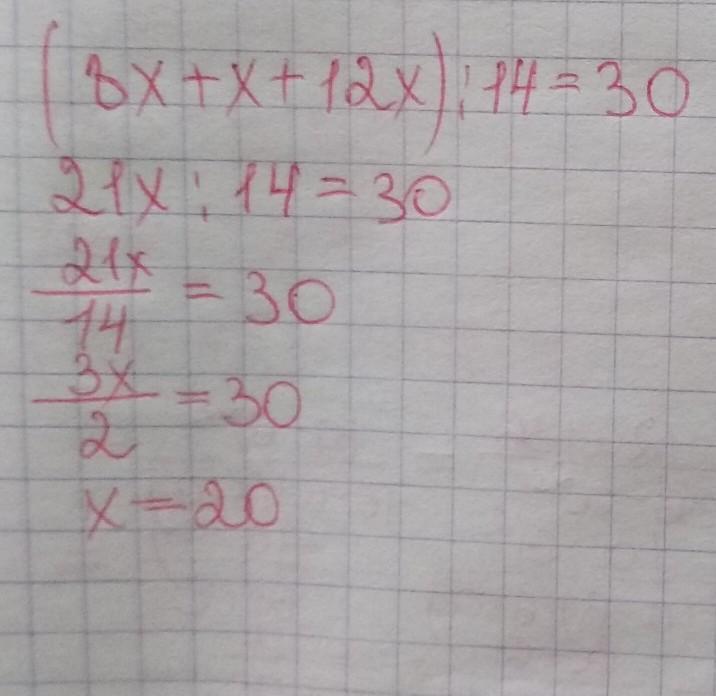 (8x+x+12x):14=30
21x:14=30
21x/14=30
3x/2=30
x=20